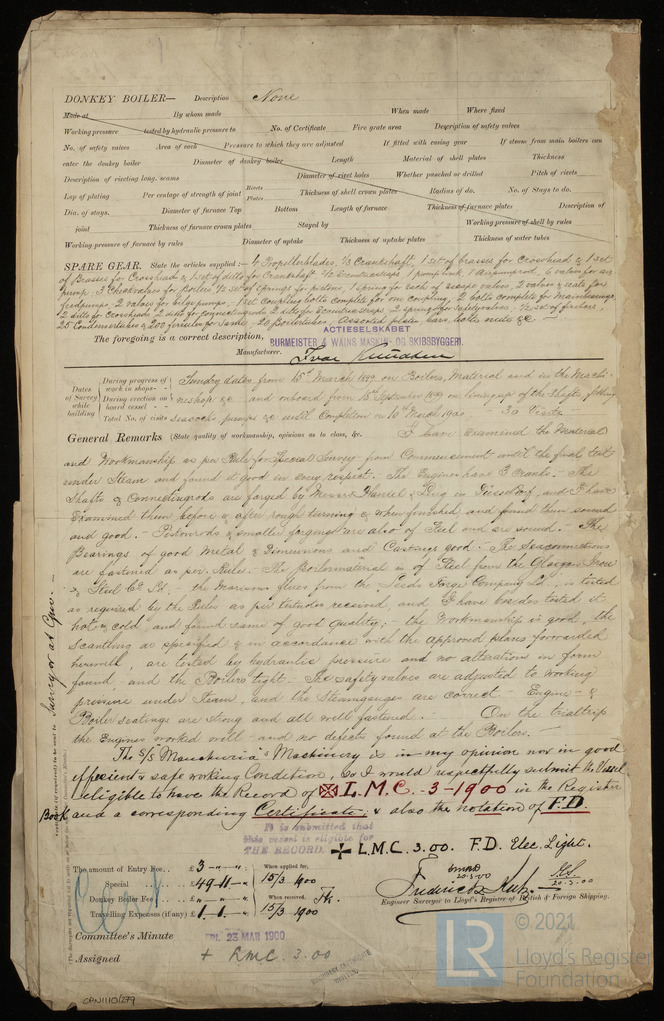 DONKEY BOILER— Description None
Made at By whom made When made Where fixed
Working pressure tested by hydraulic pressure to No. of Certificate Fire grate area Description of safety valves
No. of safety valves Area of each Pressure to which they are adjusted If fitted with easing gear If steam from main boilers can
enter the donkey boiler Diameter of donkey boiler Length Material of shell plates Thickness
Description of riveting long. seams Diameter of rivet holes Whether punched or drilled Pitch of rivets
Lap of plating Per centage of strength of joint Rivets Plates Thickness of shell crown plates Radius of do. No. of Stays to do.
Dia. of stays. Diameter of furnace Top Bottom Length of furnace Thickness of furnace plates Description of
joint Thickness of furnace crown plates Stayed by Working pressure of shell by rules
Working pressure of furnace by rules Diameter of uptake Thickness of uptake plates Thickness of water tubes
SPARE GEAR. State the articles supplied:— 4 Propellerblades, 1/3 Crankshaft, 1 set of brasses for Crosshead & 1 set
of Brasses for Crosshead & 1 set of ditto for Crankshaft 1/2 Excentricstraps, 1 pumplink, 1 Airpumprod, 6 valves for air
pump - 3 Checkvalves for Boiler 1/2 set of springs for pistons, 1 spring for each of escape valves, 2 valves & seats for
feedpumps, 2 valves for bilgepumps, 1 set Coupling bolts complete for one coupling, 2 bolts complete for Mainbearings,
2 ditto for Crossheads 2 ditto for Connectingrods 2 ditto for Excentricstraps, 2 springs for Safetyvalves - 1/2 set of firebars,
25 Condensertubes & 200 ferrules for same - 20 Boilertubes, Assorted plates, bars, bolts, nuts &c. —
The foregoing is a correct description,
ACTIESELSKABET
BURMEISTER & WAINS MASKIN- OG SKIBSBYGGERI.
Manufacturer. Ivar Knudsen
Dates of Survey while building
During progress of work in shops- - Sundry dates from 15th March 1899 on Boilers, Material and in the Machi-
During erection on board vessel - - neshop &c and onboard from 15 September 1899 on lining up of the Shafts, fitting
Total No. of visits seacocks pumps &c until Completion on 10th March 1900 - 30 Visits
General Remarks (State quality of workmanship, opinions as to class, &c. I have examined the Material
and Workmanship as per Rule for Special Survey from Commencement until the final test
under Steam and found it good in every respect. - The Engines have 3 Cranks. - The
Shafts & Connectingrods are forged by Messrs Haniel & Lueg in Düsseldorf, and I have
examined them before & after rough turning & when finished and found them sound
and good. - Pistonrods & smaller forgings are also of Steel and are sound. - The
Bearings of good Metal & Dimensions and Castings good. - The Seaconnections
are fastened as per Rule. - The Boilermaterial is of Steel from the Glasgow Iron
& Steel Co Ld. - the Morrisons flues from the Leeds Forge Company Ld., is tested
as required by the Rules as per testnotes received, and I have besides tested it
hot & cold and found same of good Quality; - the Workmanship is good, the
Scantling as specified & in accordance with the approved plans forwarded
herewith, are tested by hydraulic pressure and no alterations in form
found, and the Boilers tight. - The safety valves are adjusted to working
pressure under Steam, and the Steamgauges are correct. - Engine- &
Boiler seatings are strong and all well fastened. - On the trialtrip
the Engines worked well and no defects found at the Boilers. -
The S/S "Manchuria's" Machinery is in my opinion now in good
efficient & safe working Condition, & I would respectfully submit the Vessel
eligible to have the Record of L.M.C. -3-1900 in the Register
Book and a corresponding Certificate; & also the notation of F.D.
It is submitted that
this vessel is eligible for
THE RECORD + L.M.C. 3.00. F.D. Elec. Light.
The amount of Entry Fee.. £ 3 - " - " When applied for,
Special .. £ 49 11 - " 15/3 1900
Donkey Boiler Fee .. £ " - " - " When received,
Travelling Expenses (if any) £ 1. 1. - " 15/3 1900
20.3.00
20.3.00
Engineer Surveyor to Lloyd's Register of British & Foreign Shipping.
Committee's Minute FRI. 23 MAR 1900
Assigned + LMC. 3.00
CPN1110/279
© 2021
LR
Lloyd's Register
Foundation